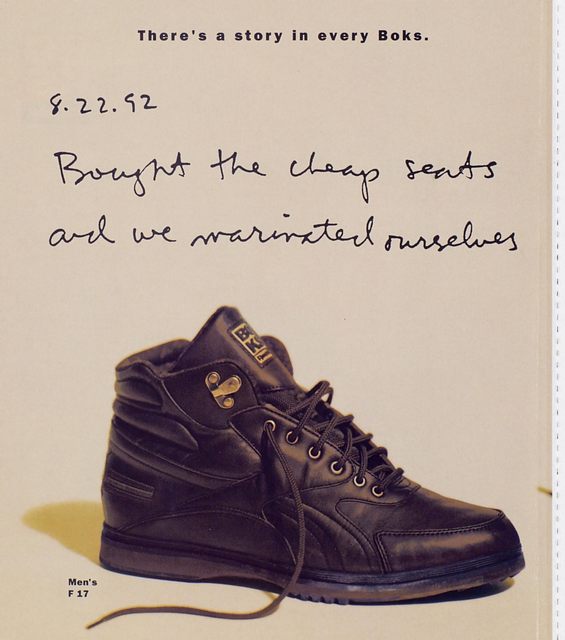 There's a story in every Boks.
8.22.92
Bought the cheap seats
and we marinated ourselves
Men's
F 17